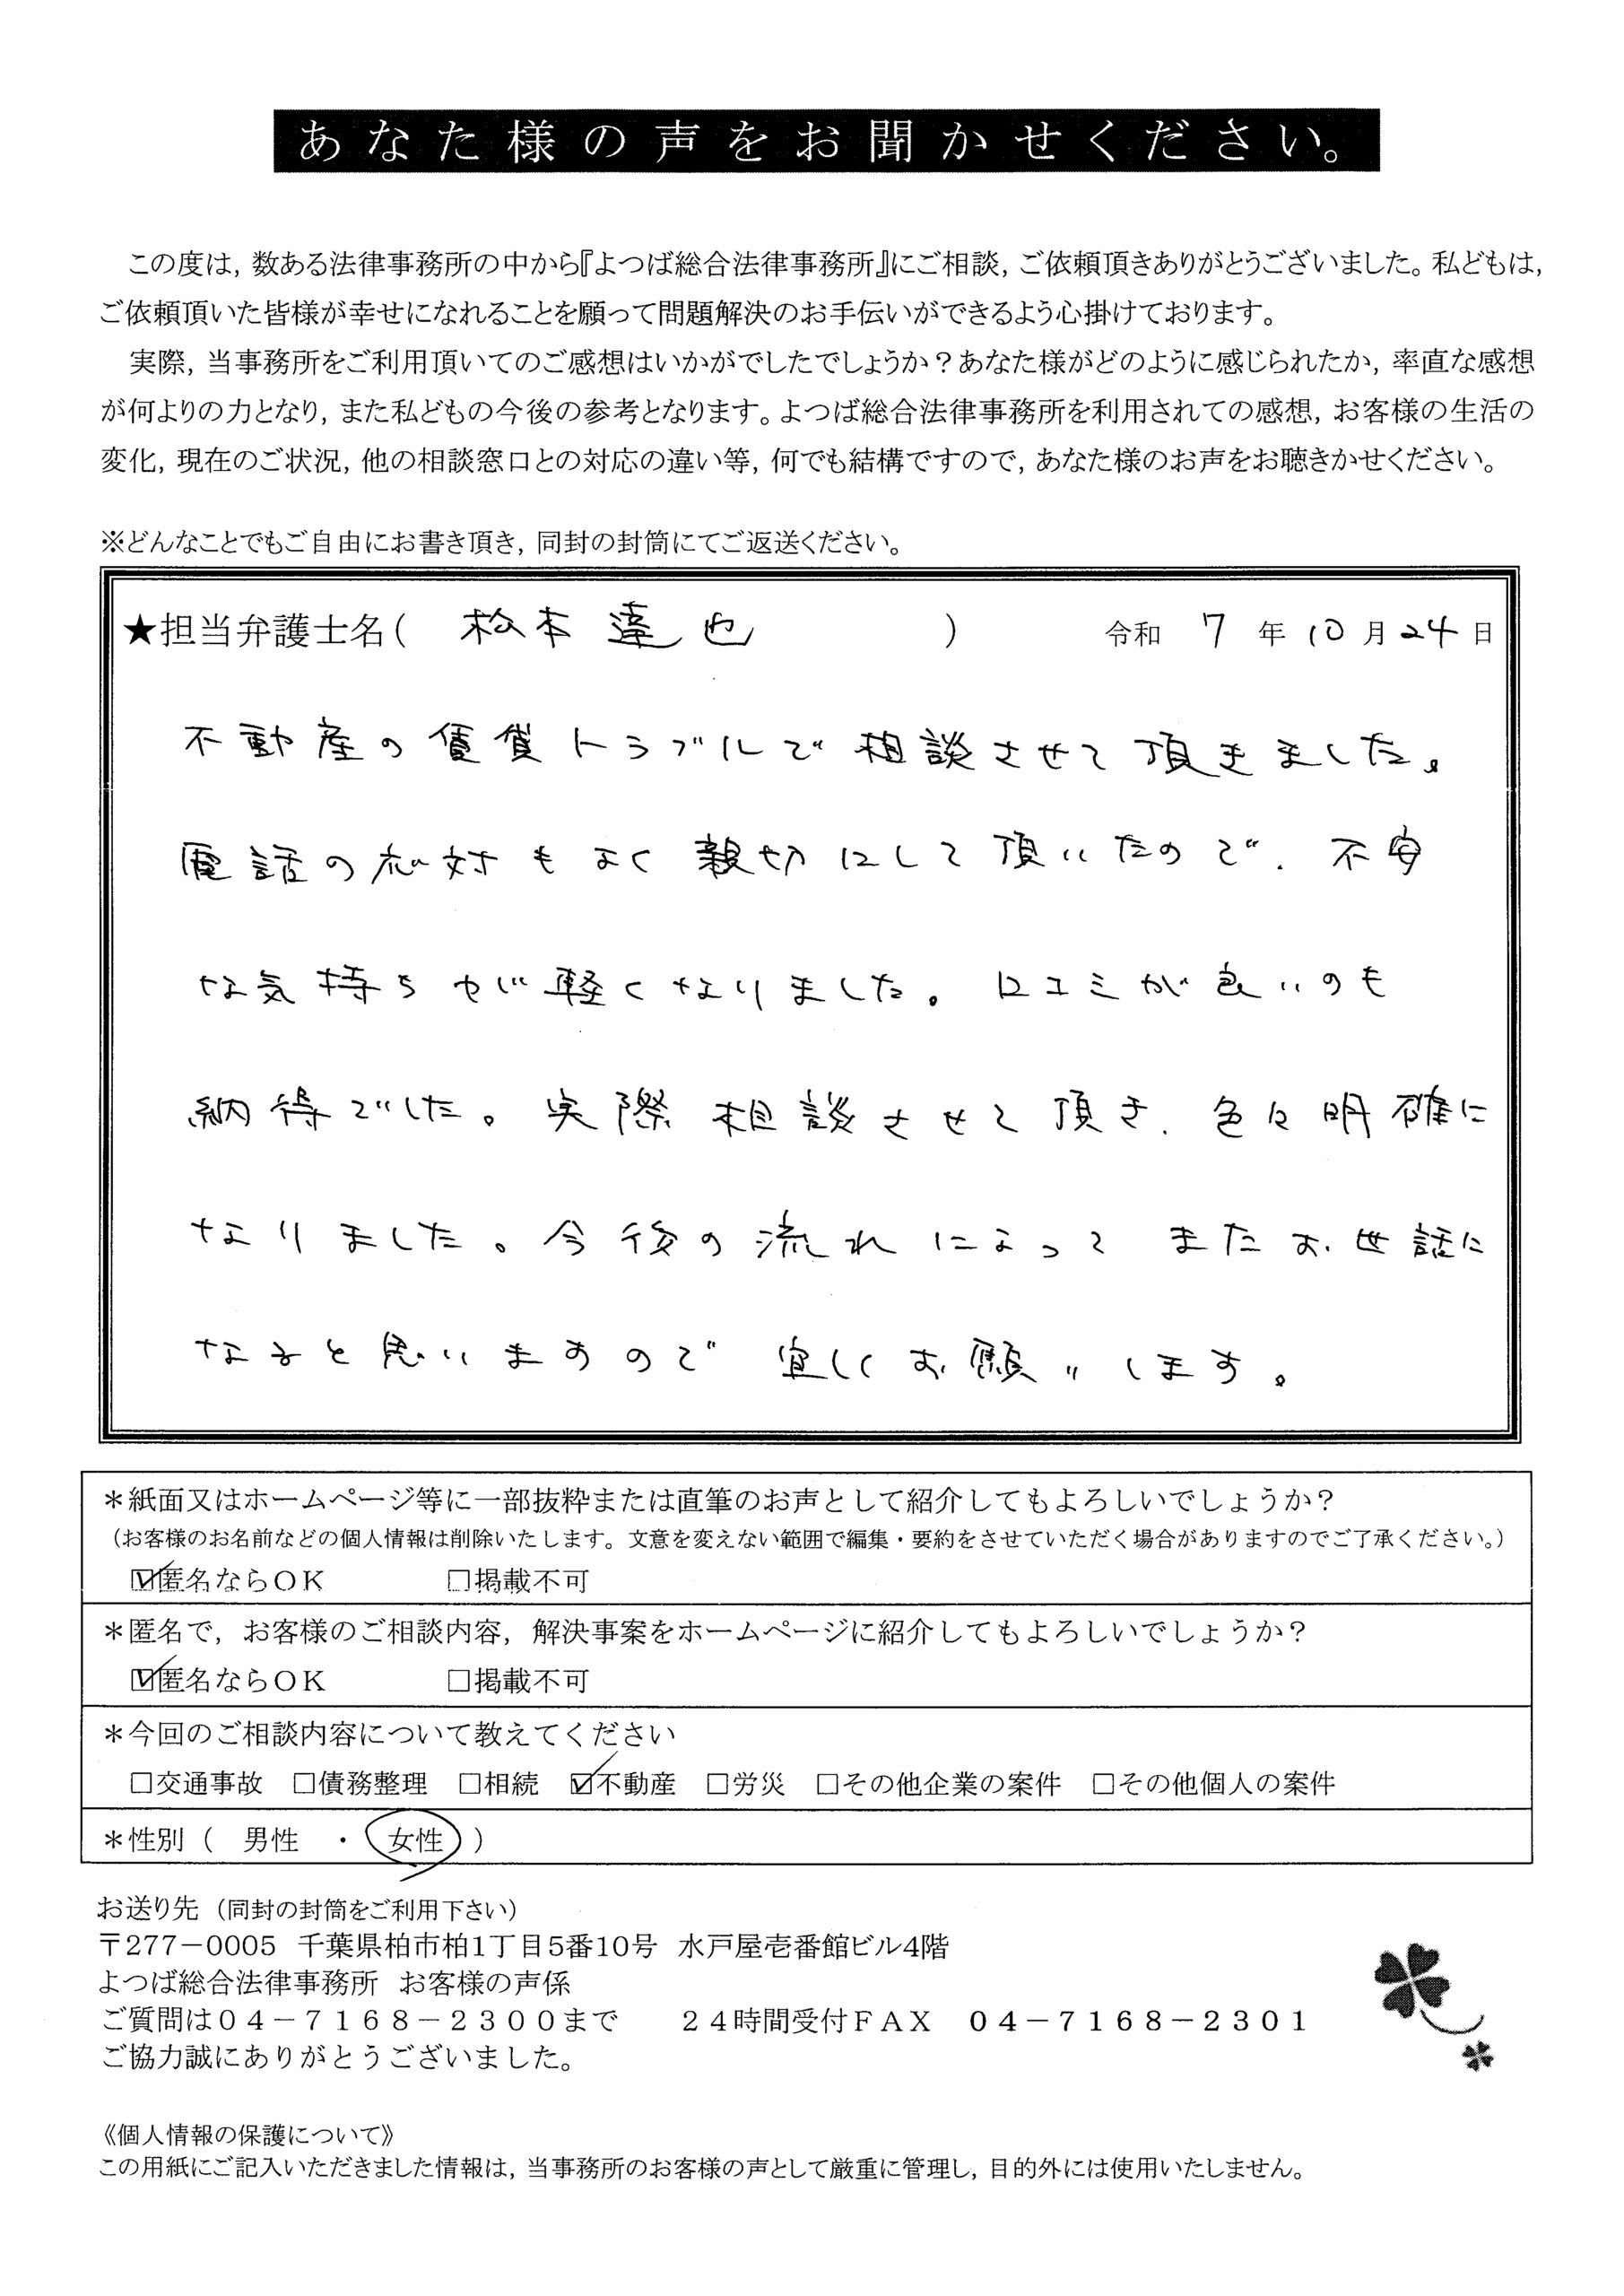 あなた様の声をお聞かせください。
この度は，数ある法律事務所の中から『よつば総合法律事務所』にご相談，ご依頼頂きありがとうございました。私どもは，
ご依頼頂いた皆様が幸せになれることを願って問題解決のお手伝いができるよう心掛けております。
実際，当事務所をご利用頂いてのご感想はいかがでしたでしょうか？あなた様がどのように感じられたか，率直な感想
が何よりの力となり，また私どもの今後の参考となります。よつば総合法律事務所を利用されての感想，お客様の生活の
変化，現在のご状況，他の相談窓口との対応の違い等，何でも結構ですので，あなた様のお声をお聴きかせください。
※どんなことでもご自由にお書き頂き，同封の封筒にてご返送ください。
★担当弁護士名（ 松本達也 ） 令和 7 年 10 月 24 日
不動産の賃貸トラブルで相談させて頂きました。
電話の応対もよく親切にして頂いたので、不安
な気持ちが軽くなりました。口コミが良いのも
納得でした。実際相談させて頂き、色々明確に
なりました。今後の流れによってまたお世話に
なると思いますので宜しくお願いします。
＊紙面又はホームページ等に一部抜粋または直筆のお声として紹介してもよろしいでしょうか？
（お客様のお名前などの個人情報は削除いたします。文意を変えない範囲で編集・要約をさせていただく場合がありますのでご了承ください。）
☑匿名ならOK □掲載不可
＊匿名で，お客様のご相談内容，解決事案をホームページに紹介してもよろしいでしょうか？
☑匿名ならOK □掲載不可
＊今回のご相談内容について教えてください
□交通事故 □債務整理 □相続 ☑不動産 □労災 □その他企業の案件 □その他個人の案件
＊性別（ 男性 ・ 女性 ）
お送り先（同封の封筒をご利用下さい）
〒277－0005 千葉県柏市柏1丁目5番10号 水戸屋壱番館ビル4階
よつば総合法律事務所 お客様の声係
ご質問は０４－７１６８－２３００まで ２４時間受付ＦＡＸ ０４－７１６８－２３０１
ご協力誠にありがとうございました。
《個人情報の保護について》
この用紙にご記入いただきました情報は，当事務所のお客様の声として厳重に管理し，目的外には使用いたしません。